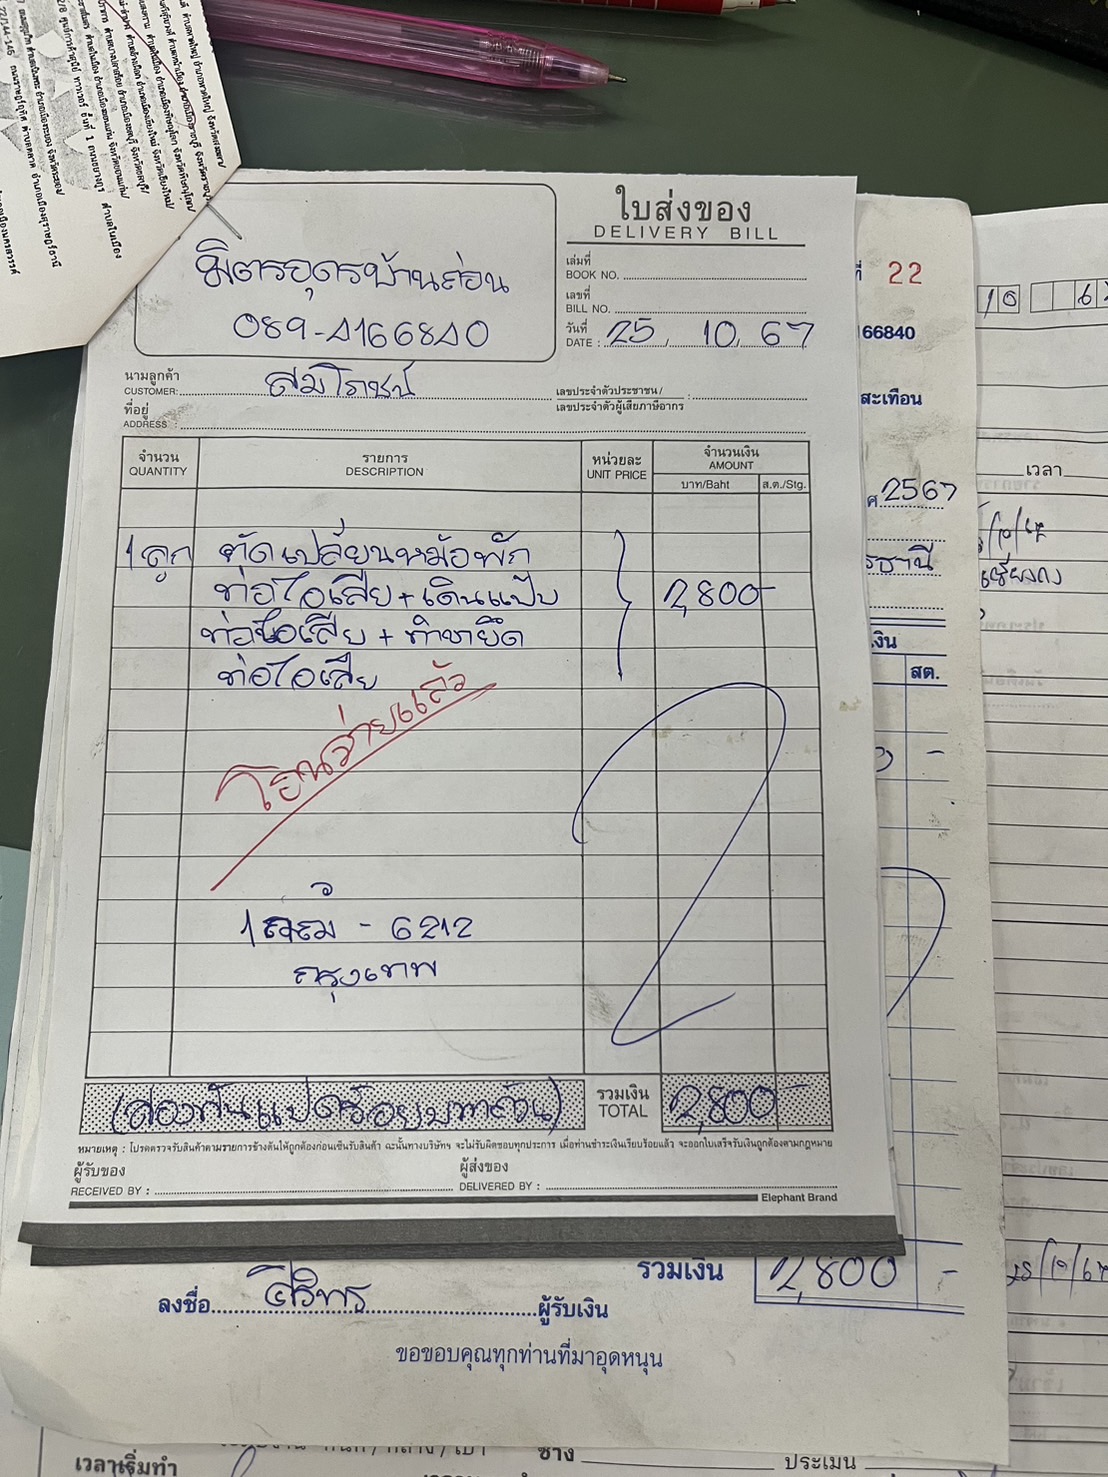 ใบส่งของ
DELIVERY BILL
มิตรอุดรบ้านถ่อน
089-4166840
เล่มที่
BOOK NO.
เลขที่
BILL NO.
วันที่
DATE : 25, 10, 67
นามลูกค้า
CUSTOMER: สมโภชน์
เลขประจำตัวประชาชน /
เลขประจำตัวผู้เสียภาษีอากร
ที่อยู่
ADDRESS :
จำนวน รายการ หน่วยละ จำนวนเงิน
QUANTITY DESCRIPTION UNIT PRICE AMOUNT
บาท/Baht ส.ต./Stg.
1 ลูก ตัดเปลี่ยนหม้อพัก
ท่อไอเสีย + เดินแป๊บ 2,800-
ท่อไอเสีย + ทำขายึด
ท่อไอเสีย
โอนจ่ายแล้ว
- 6212
กรุงเทพ
(สองพันแปดร้อยบาทถ้วน) รวมเงิน 2,800 -
TOTAL
หมายเหตุ : โปรดตรวจรับสินค้าตามรายการข้างต้นให้ถูกต้องก่อนเซ็นรับสินค้า ฉะนั้นทางบริษัทฯ จะไม่รับผิดชอบทุกประการ เมื่อท่านชำระเงินเรียบร้อยแล้ว จะออกใบเสร็จรับเงินถูกต้องตามกฎหมาย
ผู้รับของ ผู้ส่งของ
RECEIVED BY : DELIVERED BY :
Elephant Brand
22
66840
สะเทือน
2567
สต.
รวมเงิน 2,800 -
ลงชื่อ ศิริพร ผู้รับเงิน
ขอขอบคุณทุกท่านที่มาอุดหนุน
เวลา
เวลาเริ่มทำ ช่าง ประเมิน